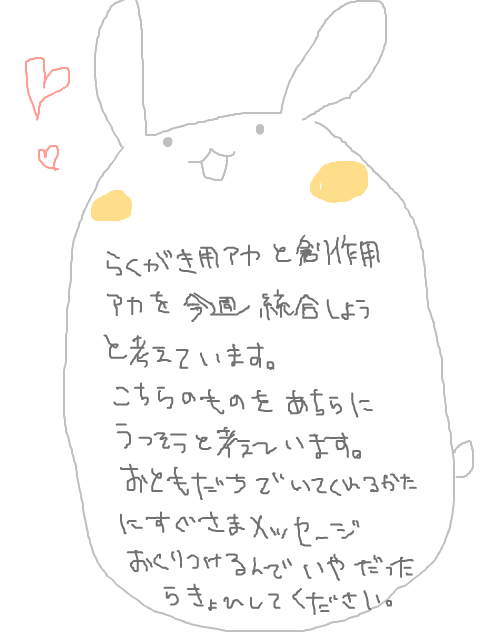 らくがき用アカと創作用
アカを今週統合しよう
と考えています。
こちらのものをあちらに
うつそうと考えています。
おともだちでいてくれるかた
にすぐさまメッセージ
おくりつけるんでいやだった
らきょひしてください。